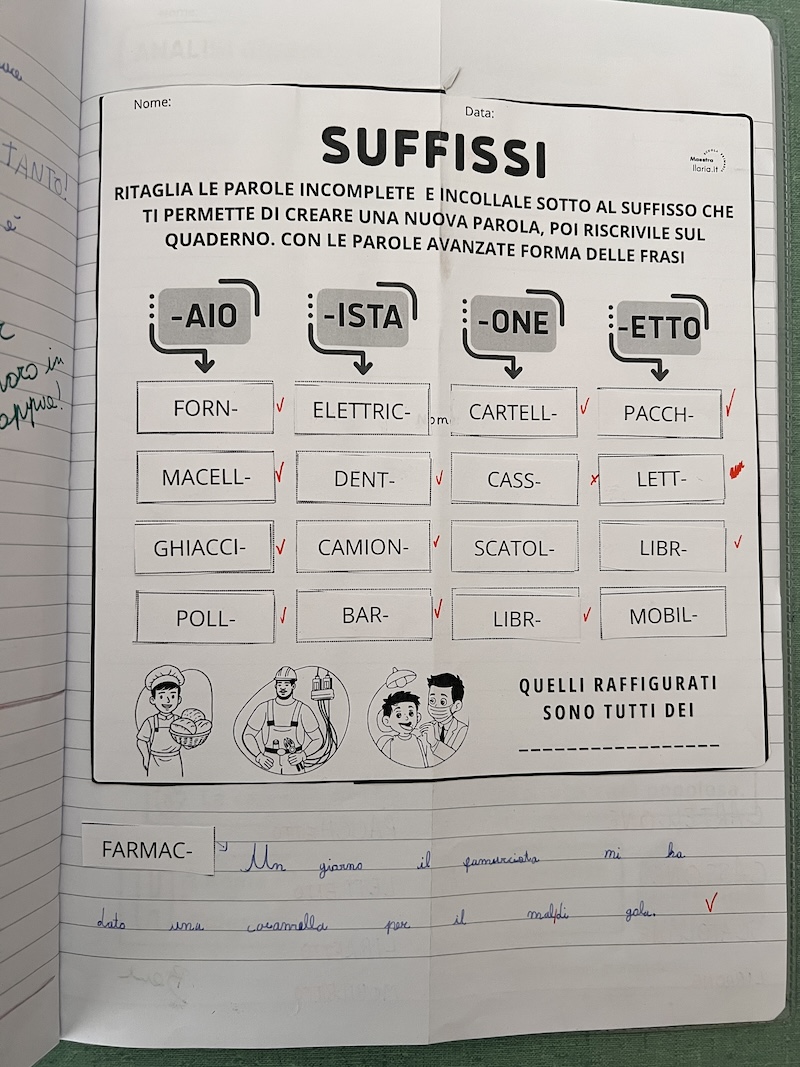 TANTO!
è
in
Nome:
Data:
SUFFISSI
Maestra
Ilaria.it
RITAGLIA LE PAROLE INCOMPLETE E INCOLLALE SOTTO AL SUFFISSO CHE
TI PERMETTE DI CREARE UNA NUOVA PAROLA, POI RISCRIVILE SUL
QUADERNO. CON LE PAROLE AVANZATE FORMA DELLE FRASI
-AIO -ISTA -ONE -ETTO
FORN- ELETTRIC- CARTELL- PACCH-
MACELL- DENT- CASS- LETT-
GHIACCI- CAMION- SCATOL- LIBR-
POLL- BAR- LIBR- MOBIL-
QUELLI RAFFIGURATI
SONO TUTTI DEI
_________________
FARMAC- Un giorno il mi ha
dato una caramella per il mal di gola.